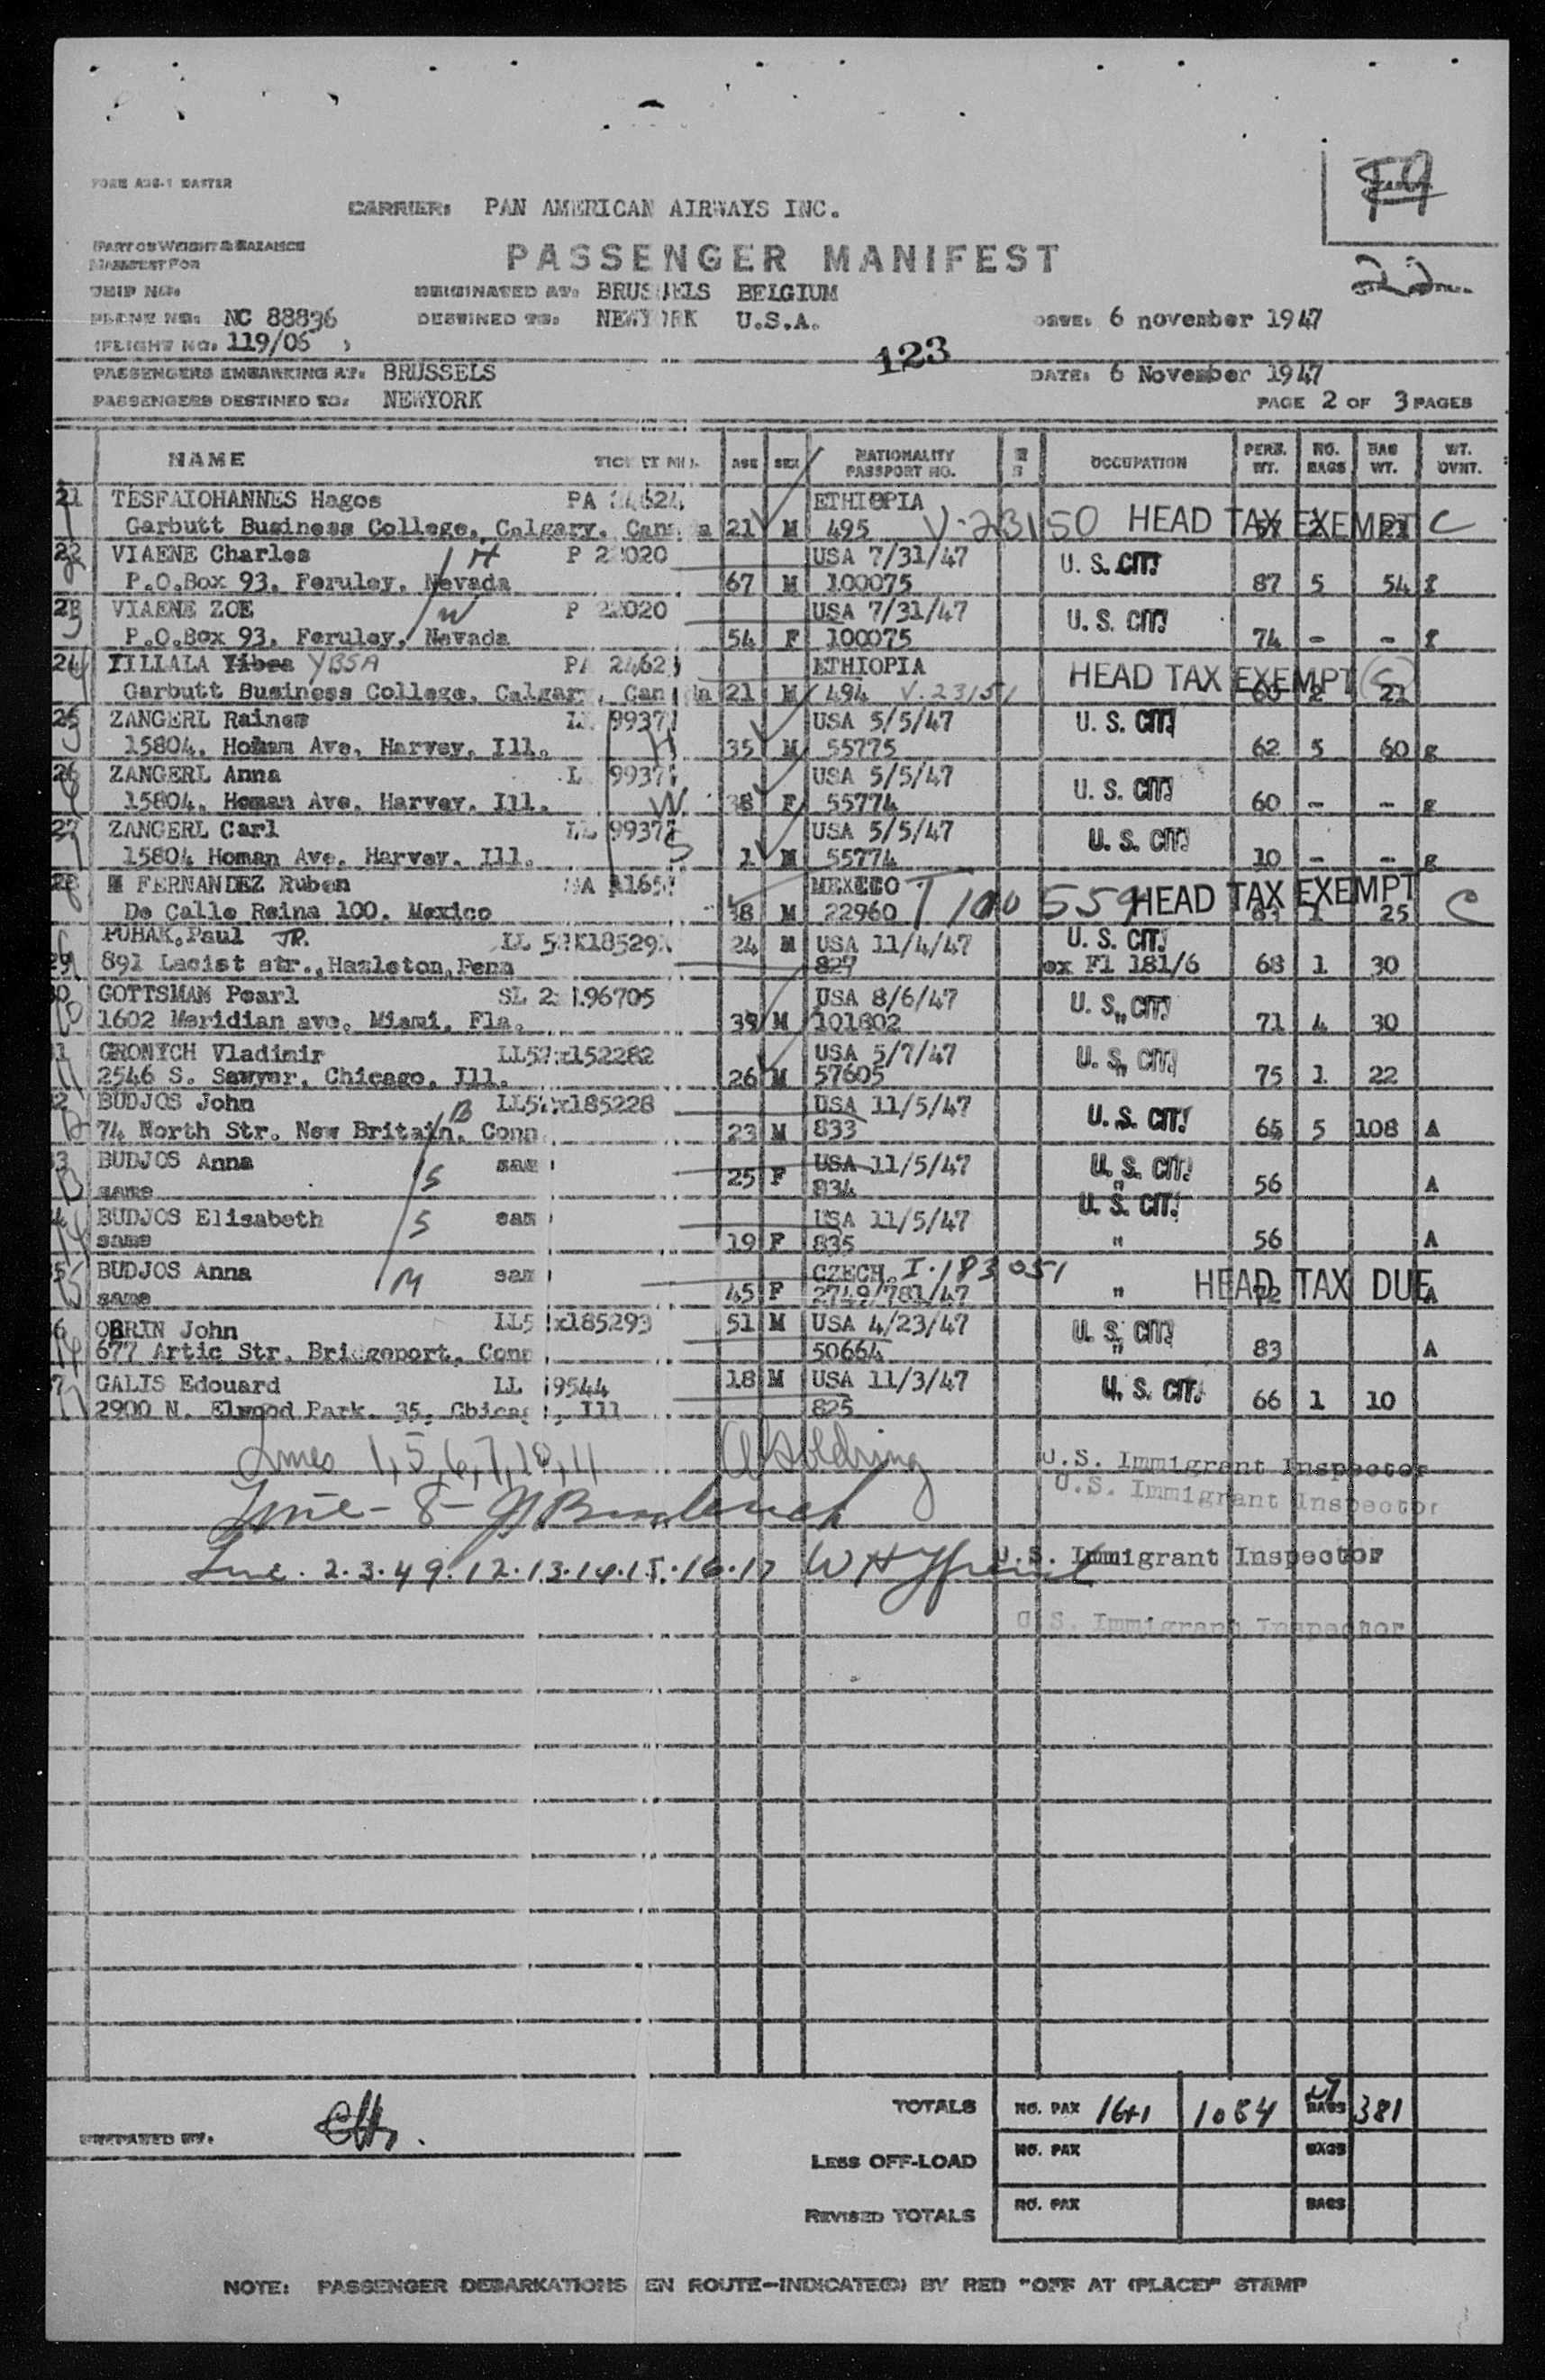 FORM ASG-1 MASTER
CARRIER: PAN AMERICAN AIRWAYS INC.
(PART OF WEIGHT & BALANCE
MANIFEST FOR
PASSENGER MANIFEST
TRIP NO:
ORIGINATED AT: BRUSSELS BELGIUM
PLANE NO: NC 88836
DESTINED TO: NEWYORK U.S.A.
DATE: 6 november 1947
(FLIGHT NO. 119/06 )
123
PASSENGERS EMBARKING AT: BRUSSELS
DATE: 6 November 1947
PASSENGERS DESTINED TO: NEWYORK
PAGE 2 OF 3 PAGES
NAME TICKET NO. AGE SEX NATIONALITY PASSPORT NO. OCCUPATION PERS. WT. NO. BAGS BAG WT. WT. OVNT.
21 TESFAIOHANNES Hagos PA ETHIOPIA
Garbutt Business College, Calgary, Canada 21 M 495 V-23150 HEAD TAX EXEMPT 21 C
22 VIAENE Charles H P 22020 USA 7/31/47
P.O.Box 93, Feruley, Nevada 67 M 100075 U. S. CIT. 87 5 54 g
23 VIAENE ZOE W P 22020 USA 7/31/47
P.O.Box 93, Feruley, Nevada 54 F 100075 U. S. CIT. 74 - - g
24 TILLALA Yibsa YBSA PA ETHIOPIA
Garbutt Business College, Calgary, Canada 21 M 494 V.23151 HEAD TAX EXEMPT 60 2 21
25 ZANGERL Rainer USA 5/5/47
15804, Homan Ave, Harvey, Ill. H 35 M 55775 U. S. CIT. 62 5 60 g
26 ZANGERL Anna USA 5/5/47
15804, Homan Ave, Harvey, Ill. W. 38 F 55774 U. S. CIT. 60 - - g
27 ZANGERL Carl LL USA 5/5/47
15804 Homan Ave, Harvey, Ill. S 1 M 55774 U. S. CIT. 10 - - g
28 FERNANDEZ Ruben MEXICO T 100559 HEAD TAX EXEMPT
De Calle Reina 100, Mexico 38 M 22960 63 1 25 C
PUHAK, Paul JR. 24 M USA 11/4/47 U. S. CIT.
29 891 Laoist str., Hazleton, Penn 827 ex Fl 181/6 68 1 30
GOTTSMAN Pearl USA 8/6/47 U. S. CIT.
1602 Meridian ave, Miami, Fla. 39 M 101802 " 71 4 30
GRONYCH Vladimir LL52x152282 USA 5/7/47 U. S. CIT.
2546 S. Sawyer, Chicago, Ill. 26 M 57605 " 75 1 22
BUDJOS John B LL52x185228 USA 11/5/47
74 North Str. New Britain, Conn 23 M 833 U. S. CIT. 65 5 108 A
BUDJOS Anna S sam USA 11/5/47 U. S. CIT.
same 25 F 834 " 56 A
BUDJOS Elisabeth S sam USA 11/5/47 U. S. CIT.
same 19 F 835 " 56 A
BUDJOS Anna M sam CZECH. I-183051
same 45 F 2749/781/47 " HEAD TAX DUE 72 A
OBRIN John LL5 x185293 51 M USA 4/23/47 U. S. CIT.
677 Artic Str, Bridgeport, Conn 50664 " 83 A
GALIS Edouard LL 9544 18 M USA 11/3/47 U. S. CIT.
2900 N. Elwood Park. 35, Chicago, Ill 825 66 1 10
Lines 1,5,6,7,10,11 Goldring U.S. Immigrant Inspector
U.S. Immigrant Inspector
Line - 8 -
Line. 2.3.4 9.12.13.14.15.16.17 U.S. Immigrant Inspector
U.S. Immigrant Inspector
TOTALS NO. PAX 16+1 1084 BAGS 381
PREPARED BY:
LESS OFF-LOAD NO. PAX BAGS
REVISED TOTALS NO. PAX BAGS
NOTE: PASSENGER DEBARKATIONS EN ROUTE-INDICATE(D) BY RED "OFF AT (PLACE)" STAMP